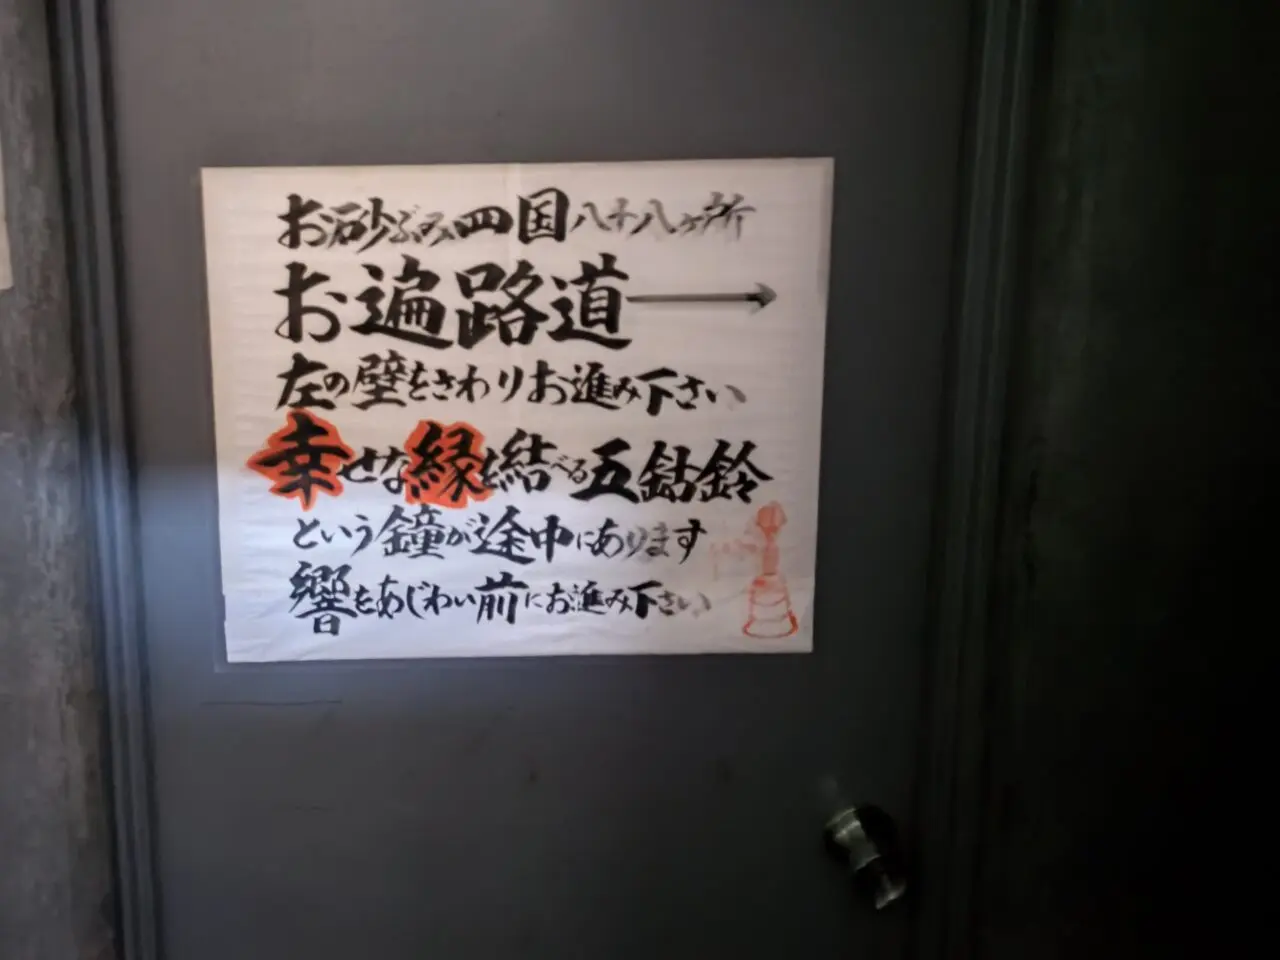 お砂ぶみ四国八十八ヶ所
お遍路道→
左の壁をさわりお進み下さい
幸せな縁を結べる五鈷鈴
という鐘が途中にあります
響をあじわい前にお進み下さい